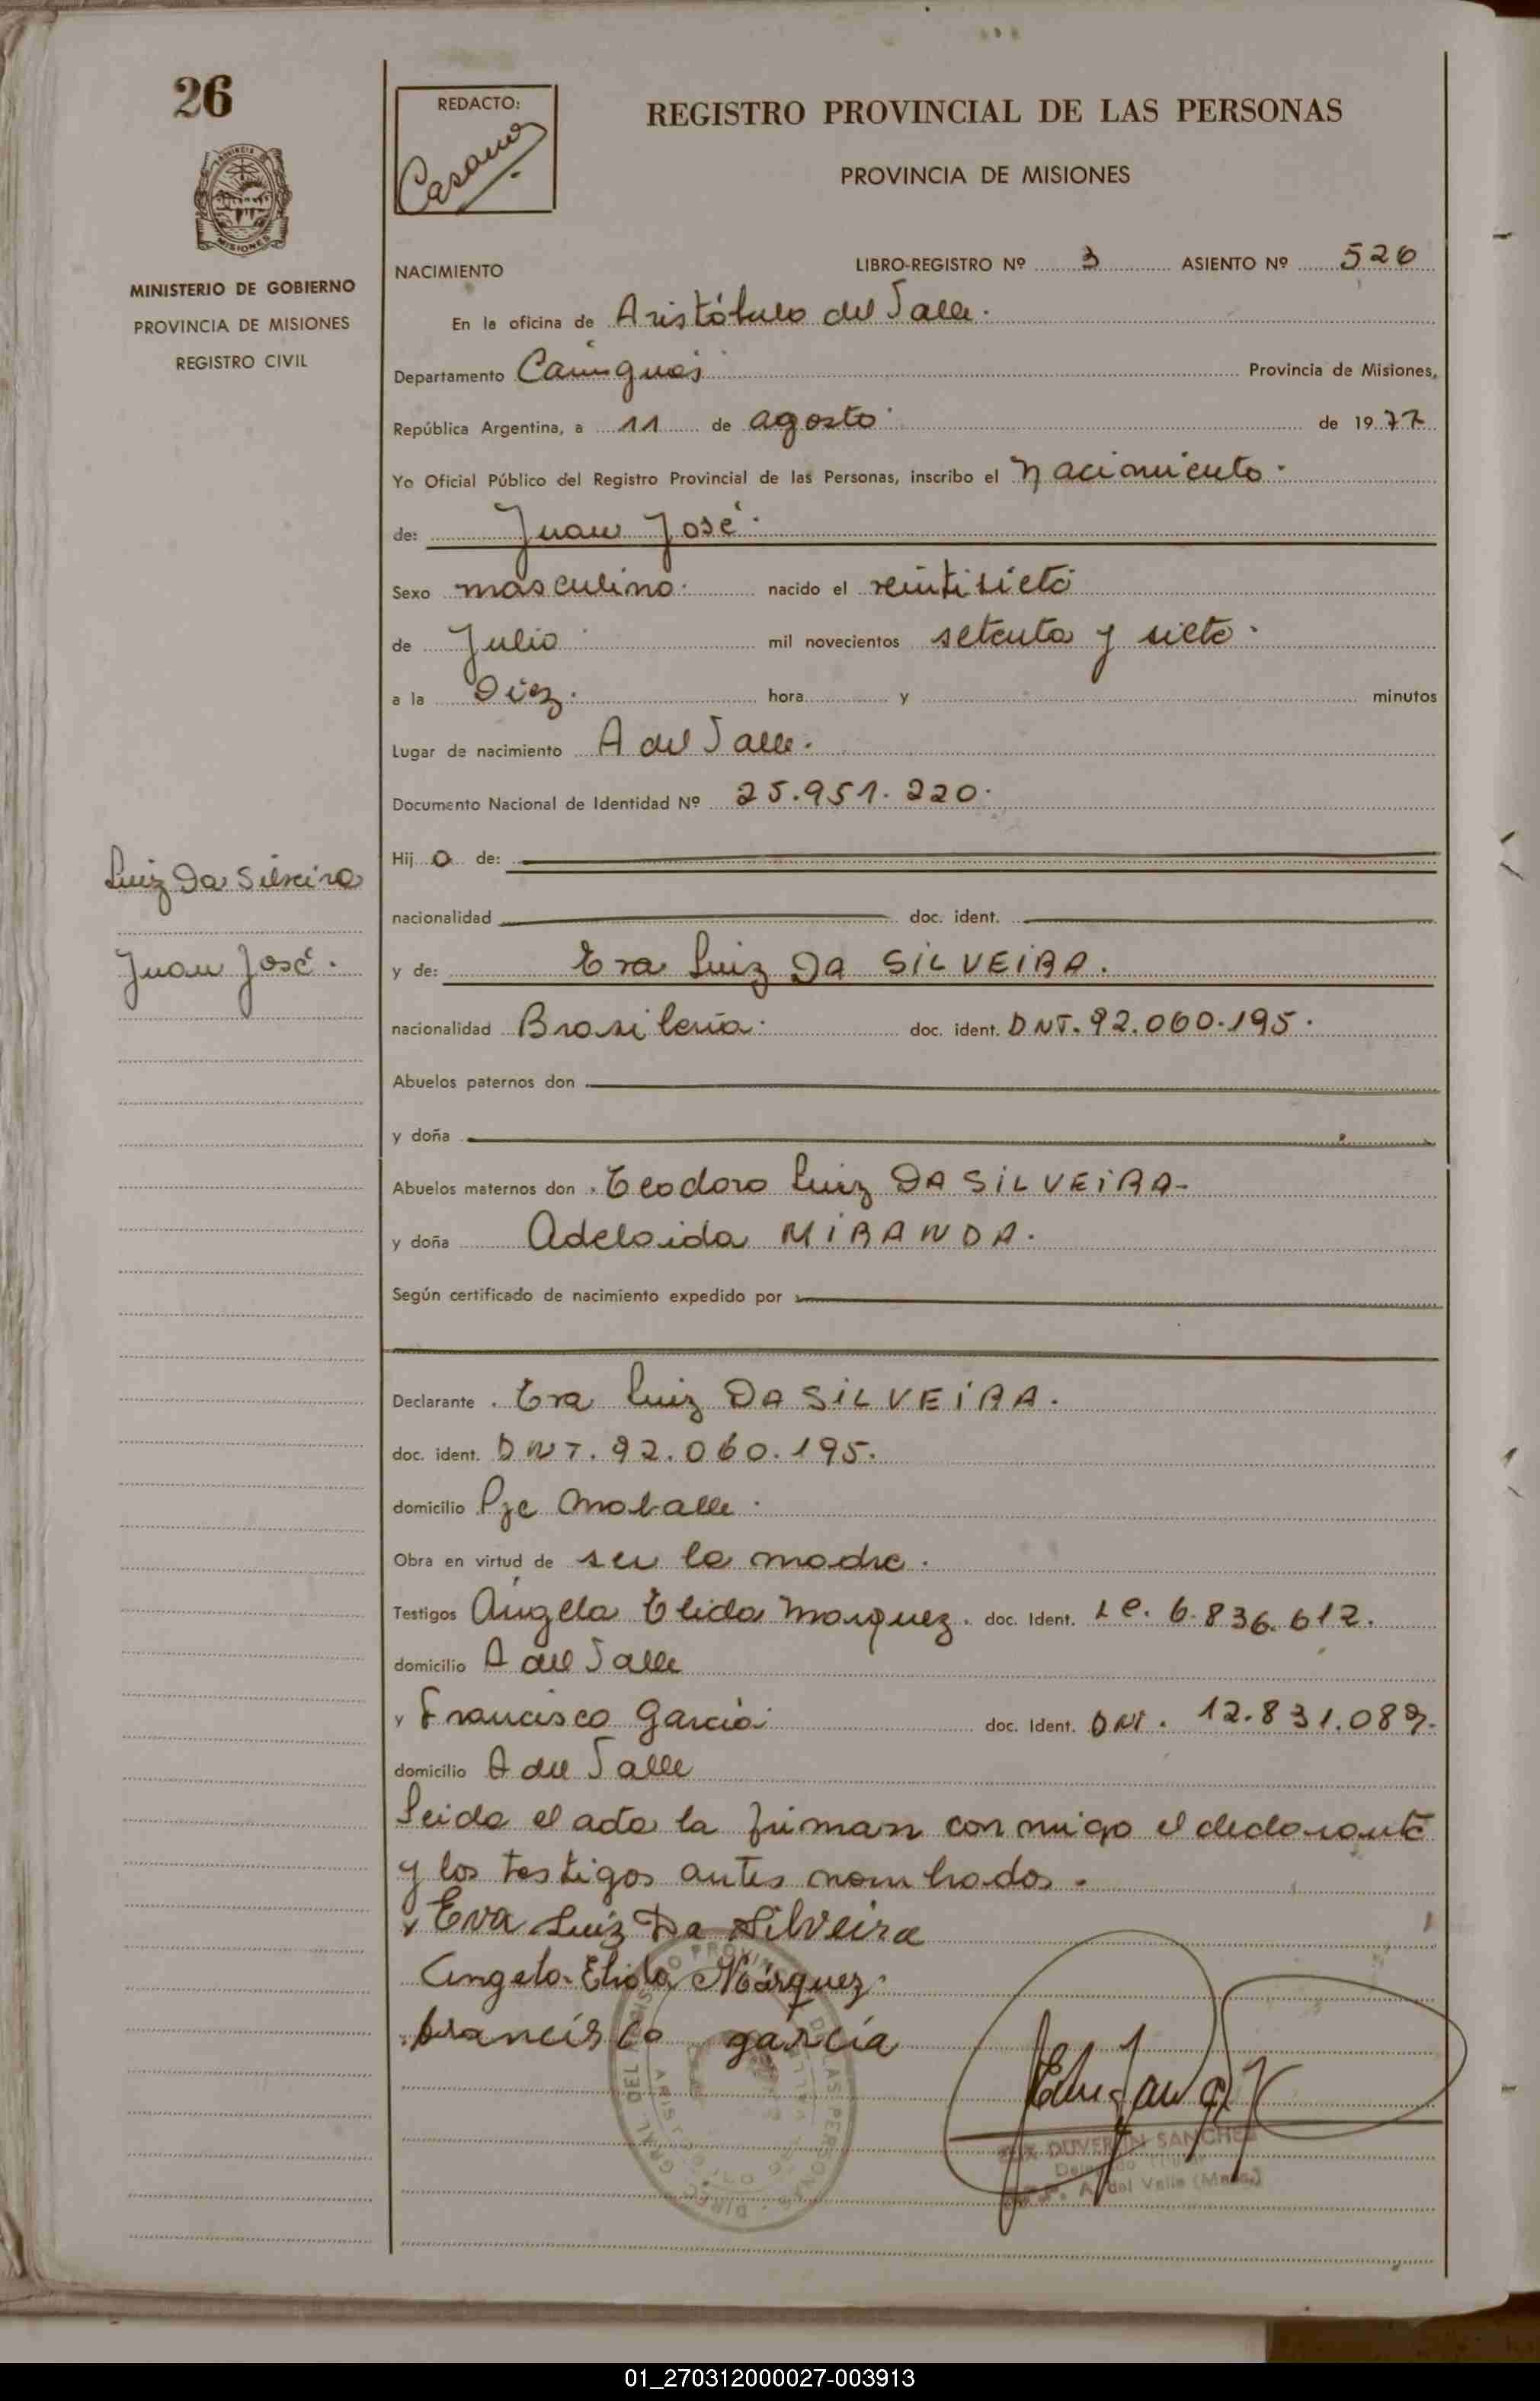 26
REDACTO:
Casano
REGISTRO PROVINCIAL DE LAS PERSONAS
PROVINCIA DE MISIONES
PROVINCIA
MISIONES
MINISTERIO DE GOBIERNO
PROVINCIA DE MISIONES
REGISTRO CIVIL
NACIMIENTO LIBRO-REGISTRO Nº 3 ASIENTO Nº 526
En la oficina de Aristóbulo del Valle.
Departamento Cainguás Provincia de Misiones,
República Argentina, a 11 de agosto de 1977
Yo Oficial Público del Registro Provincial de las Personas, inscribo el nacimiento
de: Juan José
Sexo masculino nacido el veintisiete
de Julio mil novecientos setenta y siete
a la Diez. hora y minutos
Lugar de nacimiento A del Valle.
Documento Nacional de Identidad Nº 25.951.220
Hij o de:
nacionalidad doc. ident.
Luiz Da Silveira
Juan José.
y de: Eva Luiz DA SILVEIRA.
nacionalidad Brasileña doc. ident. DNT. 92.060.195.
Abuelos paternos don
y doña
Abuelos maternos don Teodoro Luiz DA SILVEIRA-
y doña Adelaida MIRANDA.
Según certificado de nacimiento expedido por
Declarante Eva Luiz DA SILVEIRA.
doc. ident. DNT. 92.060.195.
domicilio Pje Moballe.
Obra en virtud de ser la madre.
Testigos Ángela Elida Marquez. doc. Ident. LC. 6.836.612.
domicilio A del Valle
y Francisco García doc. Ident. DNI. 12.831.089.
domicilio A del Valle
Leida el acta la firman conmigo el declarante
y los testigos antes nombrados.
x Eva Luiz Da Silveira
Angela Elida Márquez
francisco garcía
DUVERLIN SANCHEZ
A. del Valle (Mnes.)
01_270312000027-003913